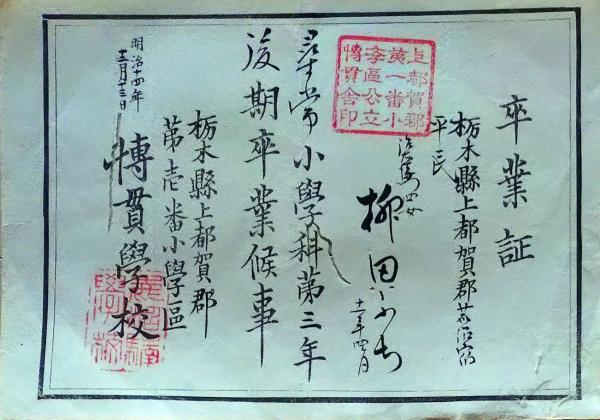 卒業証
栃木縣上都賀郡
平民
柳田
十一年四月
尋常小學科第三年
後期卒業候事
栃木縣上都賀郡
第壱番小學區
慱貫學校
明治十四年
上都賀郡
第一番小
學區公立
慱貫舎印